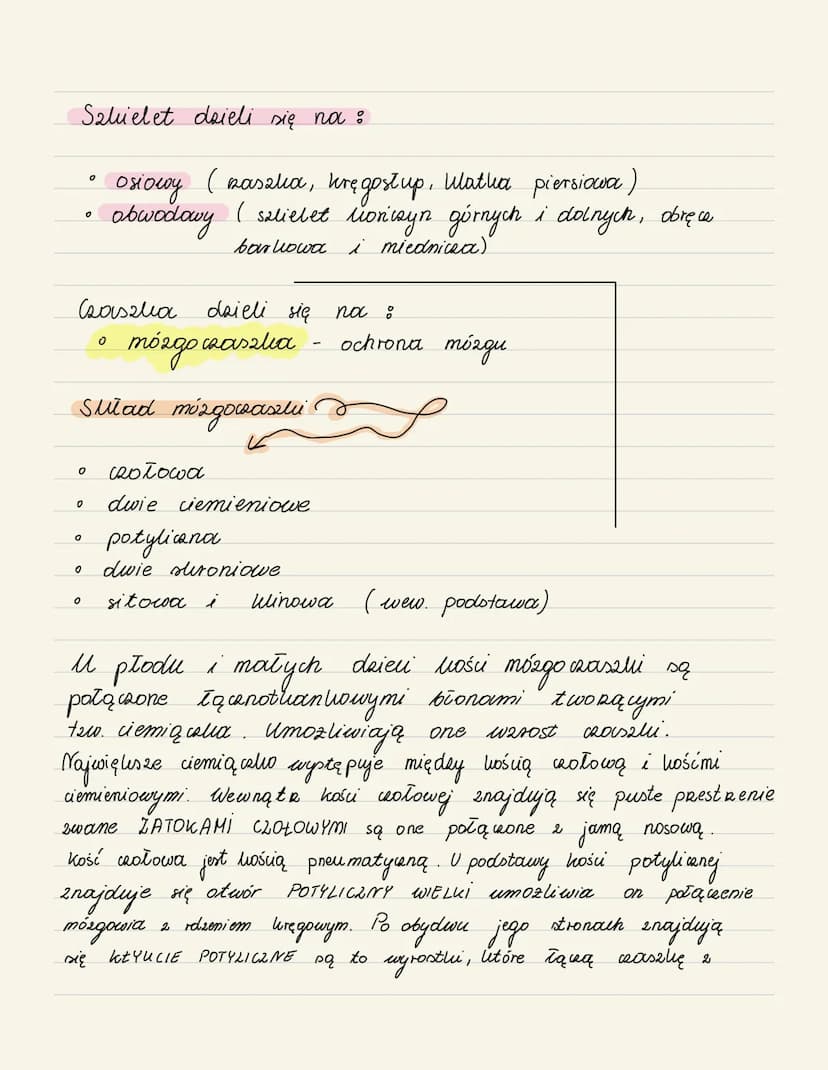 Szkielet dzieli się na :
• osiowy ( czaszka, kręgosłup, klatka piersiowa )
• obwodowy ( szkielet kończyn górnych i dolnych, obręcz
barkowa i miednicza)
Czaszka dzieli się na :
• mózgoczaszka - ochrona mózgu
Skład mózgoczaszki
• czołowa
• dwie ciemieniowe
• potyliczna
• dwie skroniowe
• sitowa i klinowa ( wew. podstawa)
U płodu i małych dzieci kości mózgoczaszki są
połączone łącznotkankowymi błonami tworzącymi
tzw. ciemiączka . Umożliwiają one wzrost czaszki.
Największe ciemiączko występuje między kością czołową i kośćmi
ciemieniowymi. Wewnątrz kości czołowej znajdują się puste przestrzenie
zwane ZATOKAMI CZOŁOWYMI są one połączone z jamą nosową .
Kość czołowa jest kością pneumatyczną . U podstawy kości potylicznej
znajduje się otwór POTYLICZNY WIELKI umożliwia on połączenie
mózgowia z rdzeniem kręgowym. Po obydwu jego stronach znajdują
się KŁYKCIE POTYLICZNE są to wyrostki, które łączą czaszkę z